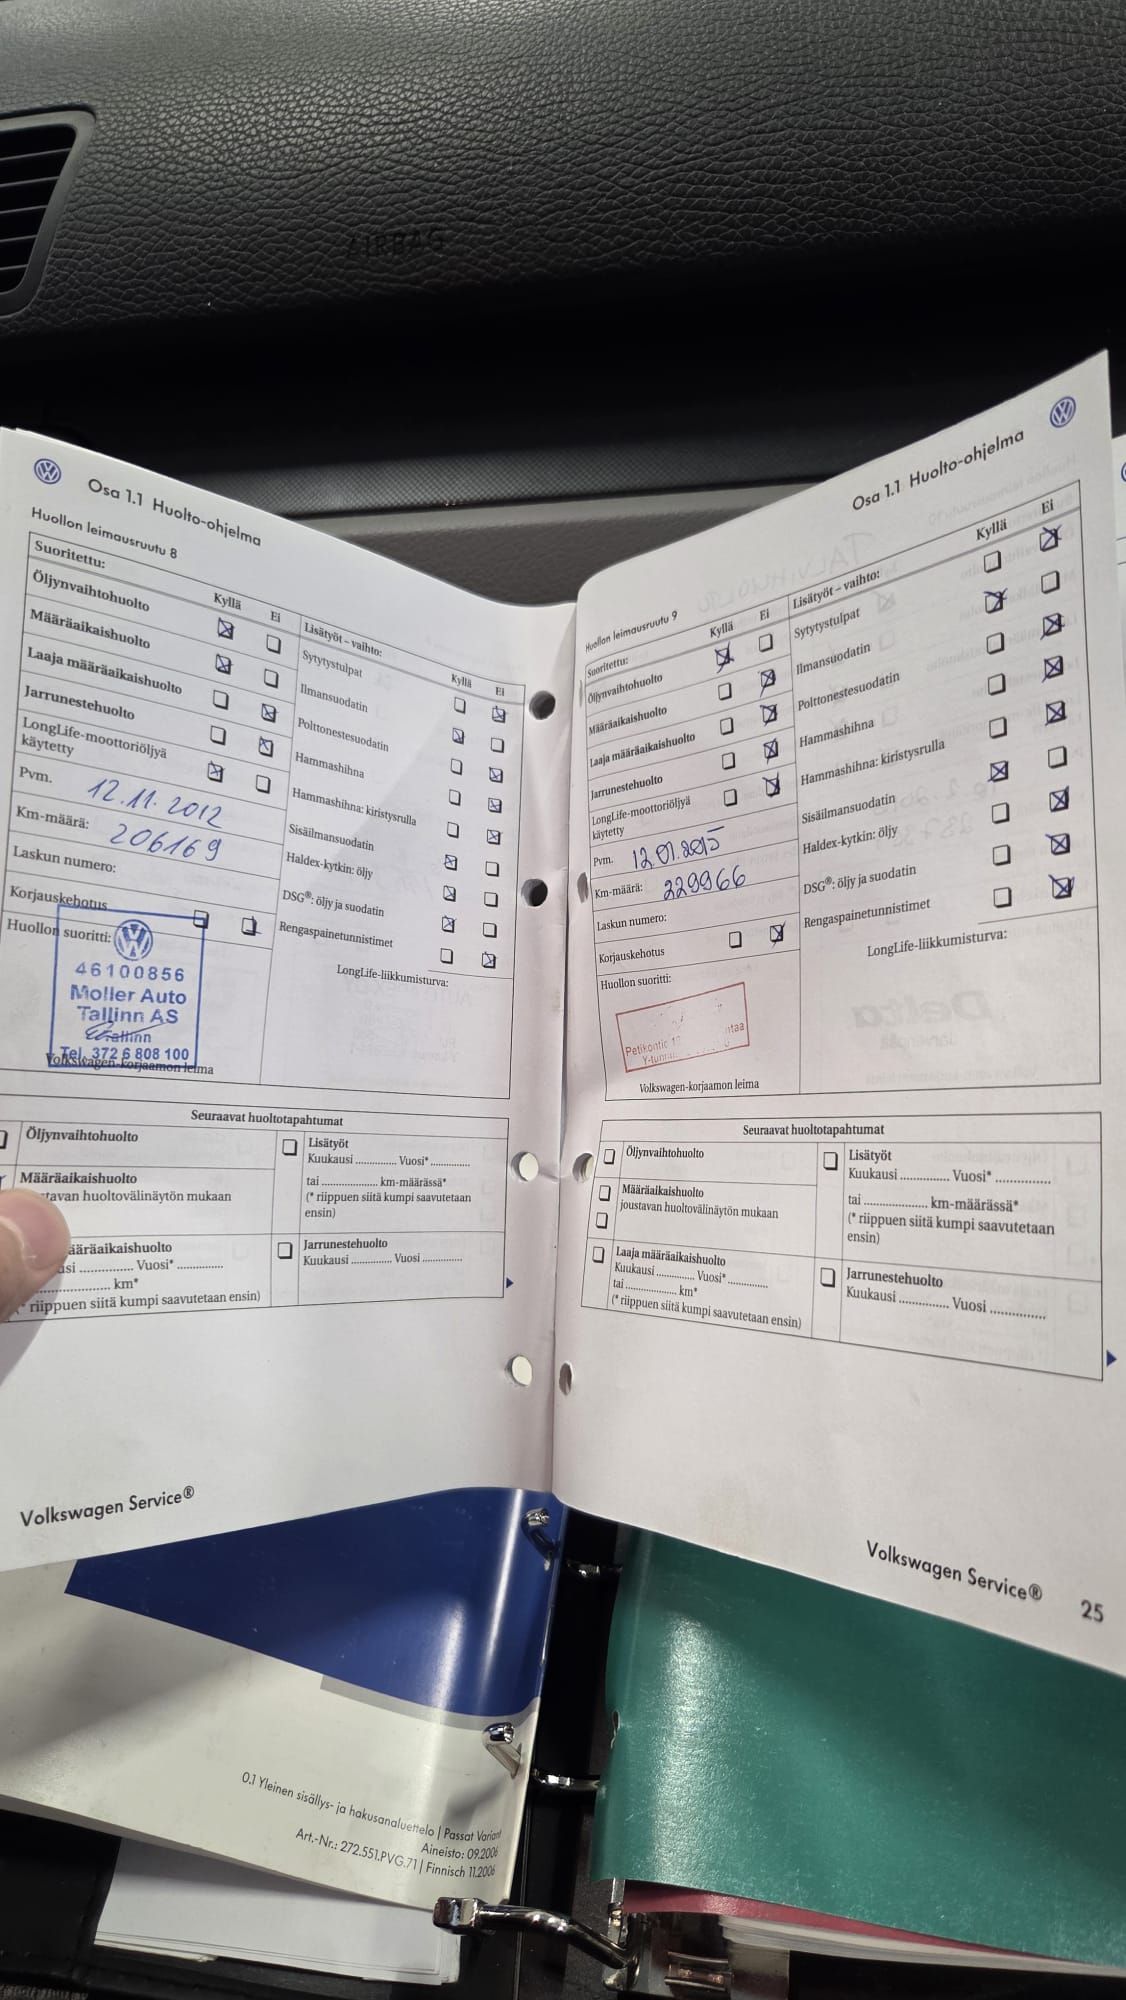 AIRBAG
Osa 1.1 Huolto-ohjelma
Huollon leimausruutu 8
Suoritettu:
Kyllä
Ei
Öljynvaihtohuolto
Määräaikaishuolto
Laaja määräaikaishuolto
Jarrunestehuolto
LongLife-moottoriöljyä
käytetty
Pvm. 12.11.2012
Km-määrä: 206169
Laskun numero:
Korjauskehotus
Huollon suoritti:
46100856
Moller Auto
Tallinn AS
Tallinn
Tel. 372 6 808 100
Volkswagen-korjaamon leima
Lisätyöt – vaihto:
Kyllä
Ei
Sytytystulpat
Ilmansuodatin
Polttonestesuodatin
Hammashihna
Hammashihna: kiristysrulla
Sisäilmansuodatin
Haldex-kytkin: öljy
DSG®: öljy ja suodatin
Rengaspainetunnistimet
LongLife-liikkumisturva:
Seuraavat huoltotapahtumat
Öljynvaihtohuolto
Määräaikaishuolto
tavan huoltovälinäytön mukaan
ääräaikaishuolto
asi .............. Vuosi* ..............
.................... km*
(* riippuen siitä kumpi saavutetaan ensin)
Lisätyöt
Kuukausi ............ Vuosi* ............
tai ................. km-määrässä*
(* riippuen siitä kumpi saavutetaan
ensin)
Jarrunestehuolto
Kuukausi ............ Vuosi ............
Volkswagen Service®
Osa 1.1 Huolto-ohjelma
Huollon leimausruutu 9
Suoritettu:
Kyllä
Ei
Öljynvaihtohuolto
Määräaikaishuolto
Laaja määräaikaishuolto
Jarrunestehuolto
LongLife-moottoriöljyä
käytetty
Pvm. 12.01.2015
Km-määrä: 229966
Laskun numero:
Korjauskehotus
Huollon suoritti:
Volkswagen-korjaamon leima
Lisätyöt – vaihto:
Kyllä
Ei
Sytytystulpat
Ilmansuodatin
Polttonestesuodatin
Hammashihna
Hammashihna: kiristysrulla
Sisäilmansuodatin
Haldex-kytkin: öljy
DSG®: öljy ja suodatin
Rengaspainetunnistimet
LongLife-liikkumisturva:
Seuraavat huoltotapahtumat
Öljynvaihtohuolto
Määräaikaishuolto
joustavan huoltovälinäytön mukaan
Laaja määräaikaishuolto
Kuukausi ............ Vuosi* ............
tai ................. km*
(* riippuen siitä kumpi saavutetaan ensin)
Lisätyöt
Kuukausi ............ Vuosi* ............
tai ................. km-määrässä*
(* riippuen siitä kumpi saavutetaan
ensin)
Jarrunestehuolto
Kuukausi ............ Vuosi ............
Volkswagen Service® 25
0.1 Yleinen sisällys- ja hakusanaluettelo | Passat Variant
Aineisto: 09.2006
Art.-Nr.: 272.551.PVG.71 | Finnisch 11.2006